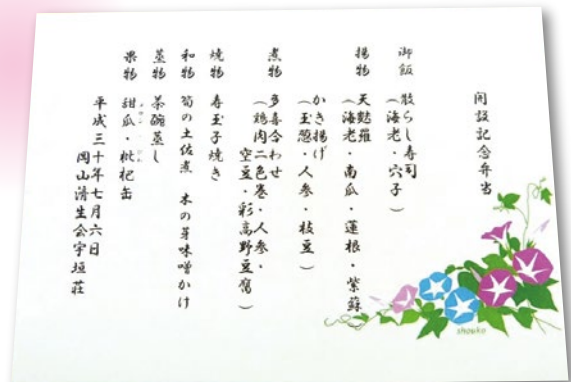 開設記念弁当
御飯　散らし寿司
（海老・穴子）
揚物　天麩羅
（海老・南瓜・蓮根・紫蘇）
かき揚げ
（玉葱・人参・枝豆）
煮物　多喜合わせ
（鶏肉二色巻・人参・
空豆・彩高野豆腐）
焼物　寿玉子焼き
和物　筍の土佐煮　木の芽味噌かけ
蒸物　茶碗蒸し
果物　甜瓜・枇杷缶
平成三十年七月六日
岡山清生会宇垣荘
shouko